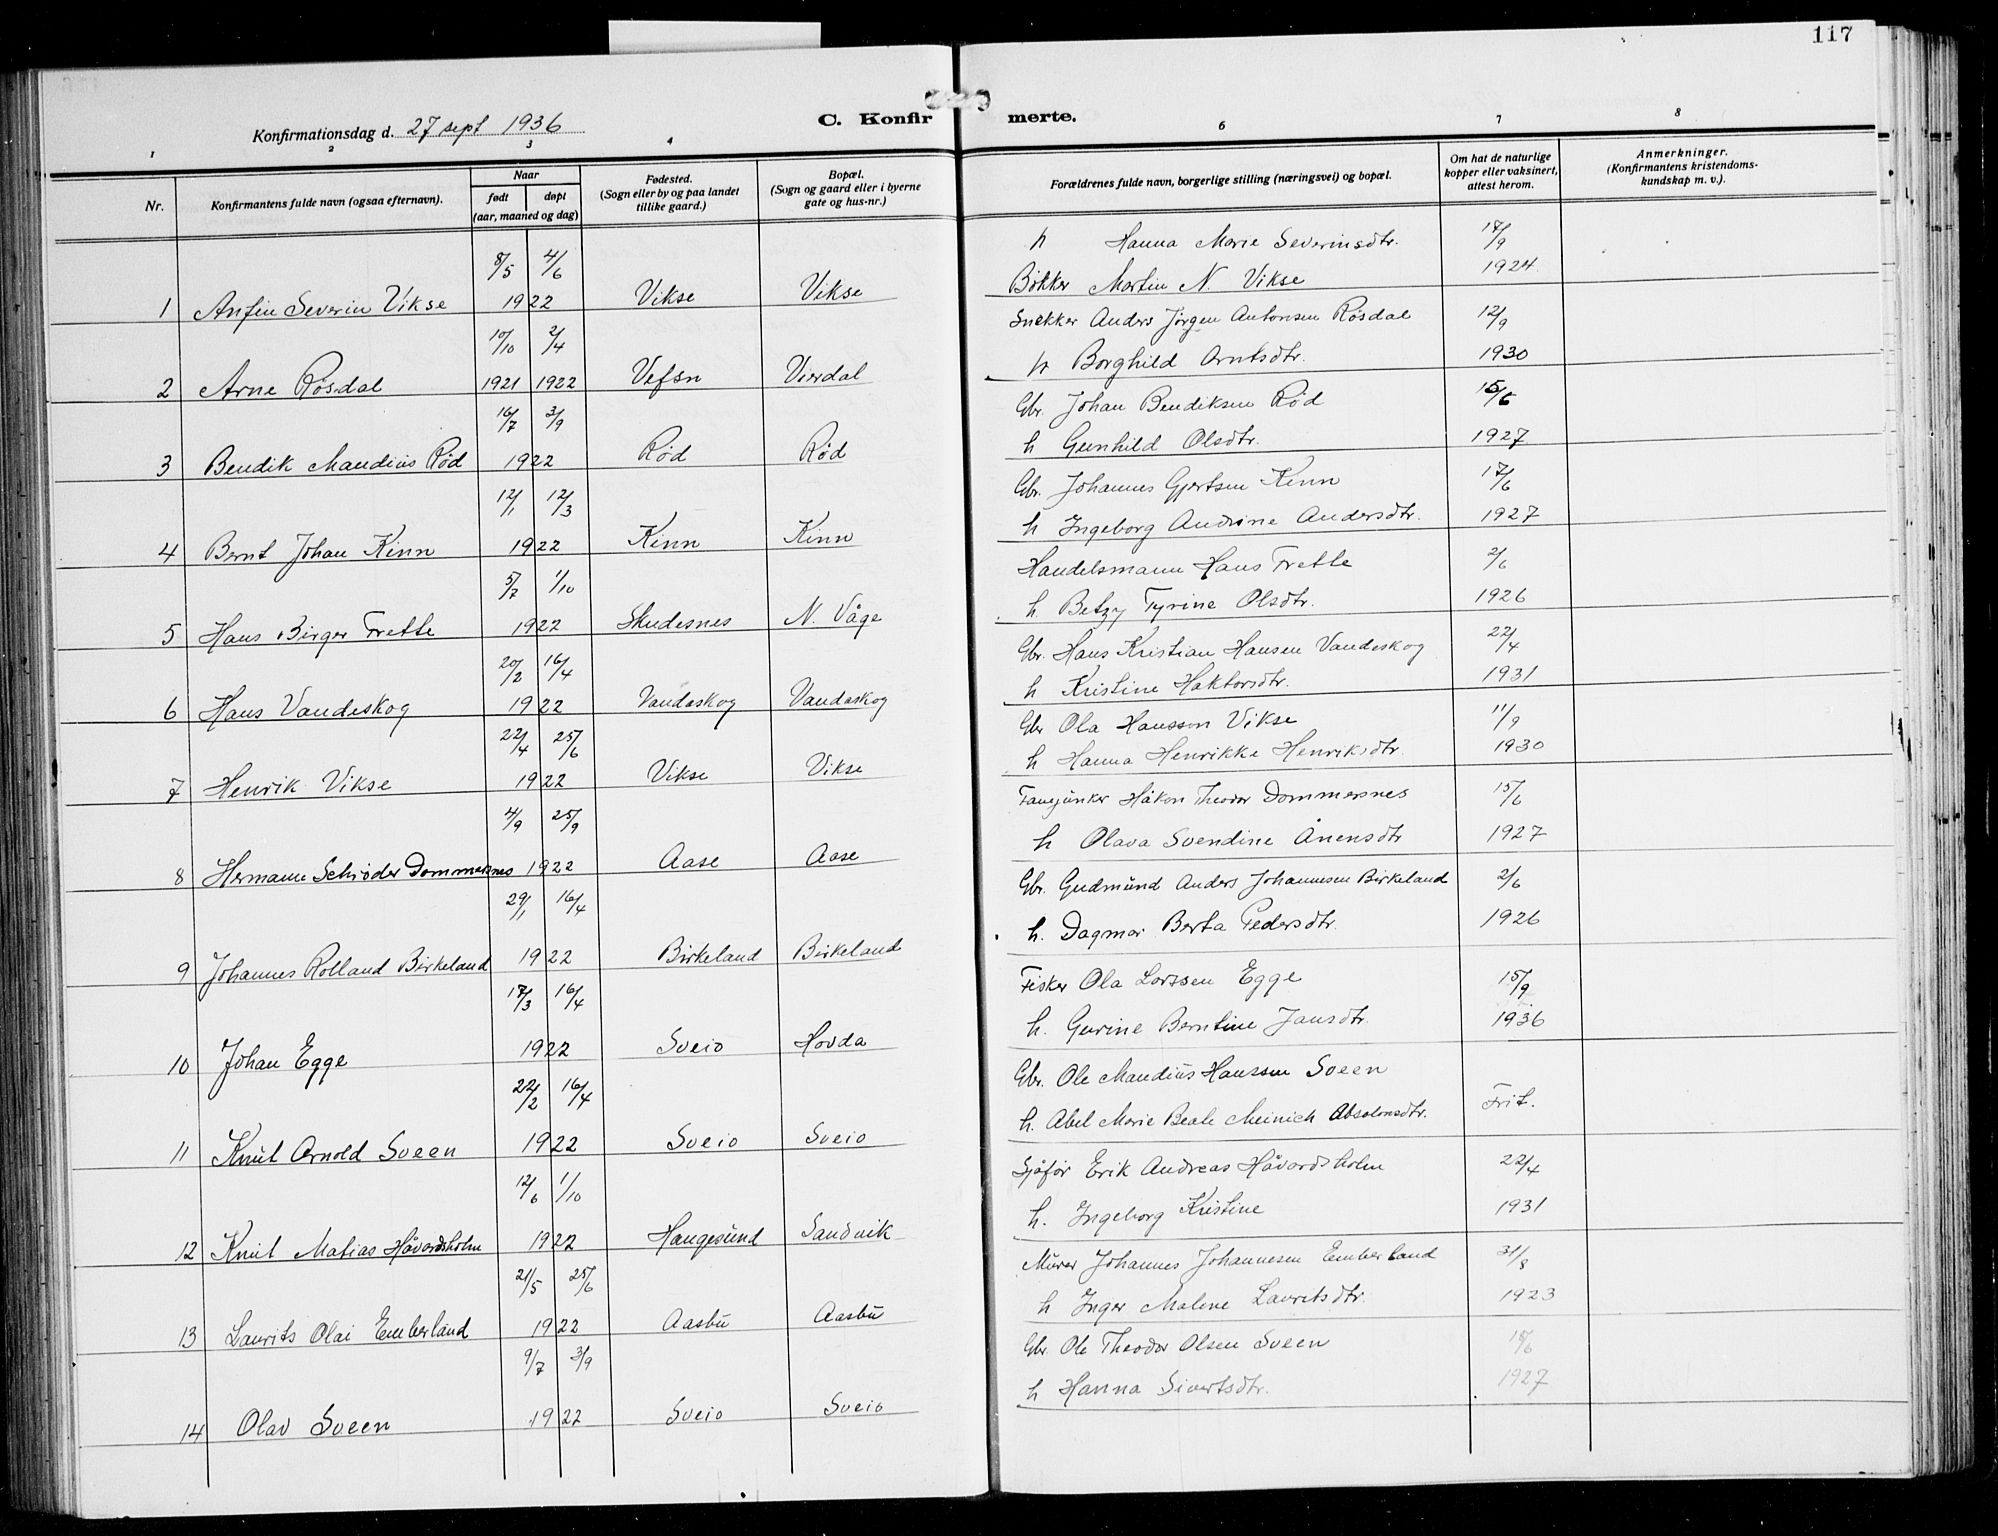 117
Konfirmationsdag d. 27 sept 1936
C. Konfirmerte.
1 2 3 4 6 7 8
Nr.
Konfirmantens fulde navn (ogsaa efternavn).
Naar
født døpt
(aar, maaned og dag)
Fødested.
(Sogn eller by og paa landet
tillike gaard.)
Bopæl.
(Sogn og gaard eller i byerne
gate og hus-nr.)
Forældrenes fulde navn, borgerlige stilling (næringsvei) og bopæl.
Om hat de naturlige
kopper eller vaksinert,
attest herom.
Anmerkninger.
(Konfirmantens kristendoms-
kundskap m. v.).
8/5 4/6 h Hanna Marie Severinsdtr. 17/9
1 Anfin Severin Vikse 1922 Vikse Vikse Bøkker Martin N. Vikse 1924
10/10 2/4 Snekker Anders Jørgen Antonsen Røsdal 12/9
2 Arne Røsdal 1921 1922 Vefsn Vierdal h Borghild Arntsdtr. 1930
16/7 3/9 Gbr. Johan Bendiksen Rød 15/6
3 Bendik Mandius Rød 1922 Rød Rød h Gunhild Olsdtr. 1927
12/1 12/3 Gbr. Johannes Gjertsen Kinn 17/6
4 Bernt Johan Kinn 1922 Kinn Kinn h Ingeborg Andrine Andersdtr. 1927
5/7 1/10 Handelsmann Hans Frette 2/6
5 Hans Birger Frette 1922 Skudesnes N. Våge h. Betzy Tyrine Olsdtr. 1926
20/2 16/4 Gbr. Hans Kristian Hansen Vandeskog 22/4
6 Hans Vandeskog 1922 Vandaskog Vandaskog h Kristine Haktorsdtr. 1931
22/4 25/6 Gbr Ola Hansson Vikse 11/9
7 Henrik Vikse 1922 Vikse Vikse h Hanna Henrikke Henriksdtr. 1930
4/9 25/9 Fanejunker Håkon Theodor Dommersnes 15/6
8 Hermann Schrøder Dommersnes 1922 Aase Aase h Olava Svendine Ånensdtr 1927
29/1 16/4 Gbr. Gudmund Anders Johannesen Birkeland 2/6
9 Johannes Rolland Birkeland 1922 Birkeland Birkeland h. Dagmar Berta Pedersdtr. 1926
17/3 16/4 Fisker Ola Larssen Egge 15/9
10 Johan Egge 1922 Sveio Hovda h. Gurine Berntine Jansdtr. 1936
22/2 16/4 Gbr. Ole Mandius Hanssen Sveen
11 Knut Arnold Sveen 1922 Sveio Sveio h. Abel Marie Beate Meinich Absolonsdtr. Frit.
12/6 1/10 Sjåfør Erik Andreas Håvardsholm 22/4
12 Knut Matias Håvardsholm 1922 Haugesund Sandvik h. Ingeborg Kristine 1931
21/5 25/6 Murer Johannes Johannesen Emberland 31/8
13 Laurits Olai Emberland 1922 Aasbu Aasbu h Inger Malene Lauritsdtr. 1923
9/7 3/9 Gbr. Ole Theodor Olsen Sveen 15/6
14 Olav Sveen 1922 Sveio Sveio h Hanna Sivertsdtr. 1927